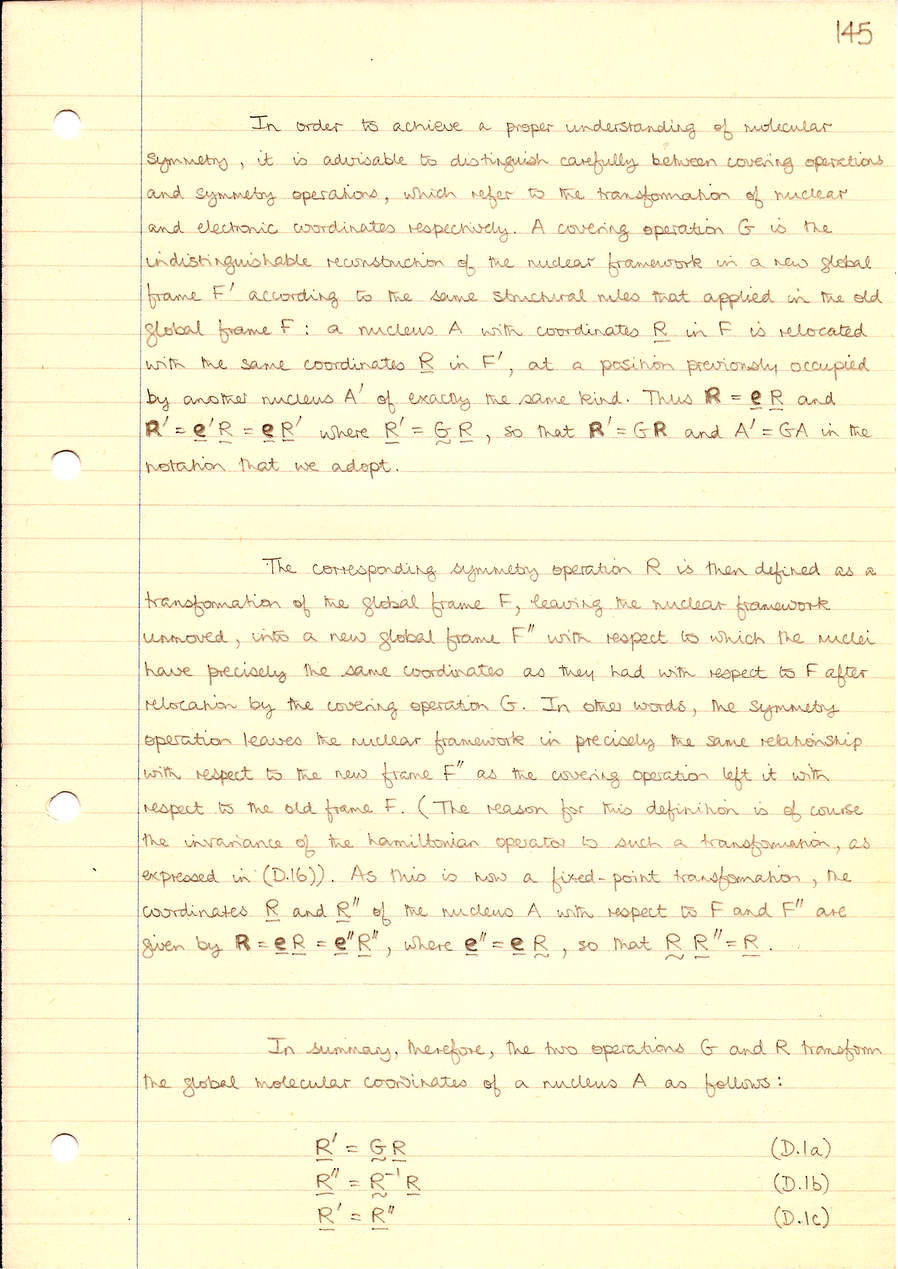 145
In order to achieve a proper understanding of molecular
symmetry, it is advisable to distinguish carefully between covering operations
and symmetry operations, which refer to the transformation of nuclear
and electronic coordinates respectively. A covering operation G is the
indistinguishable reconstruction of the nuclear framework in a new global
frame F′ according to the same structural rules that applied in the old
global frame F: a nucleus A with coordinates R̲ in F is relocated
with the same coordinates R̲ in F′, at a position previously occupied
by another nucleus A′ of exactly the same kind. Thus 𝐑 = 𝐞̲ R̲ and
𝐑′ = 𝐞̲′ R̲ = 𝐞̲ R̲′ where R̲′ = G̰ R̲, so that 𝐑′ = G𝐑 and A′ = GA in the
notation that we adopt.
The corresponding symmetry operation R is then defined as a
transformation of the global frame F, leaving the nuclear framework
unmoved, into a new global frame F″ with respect to which the nuclei
have precisely the same coordinates as they had with respect to F after
relocation by the covering operation G. In other words, the symmetry
operation leaves the nuclear framework in precisely the same relationship
with respect to the new frame F″ as the covering operation left it with
respect to the old frame F. (The reason for this definition is of course
the invariance of the hamiltonian operator to such a transformation, as
expressed in (D.16)). As this is now a fixed-point transformation, the
coordinates R̲ and R̲″ of the nucleus A with respect to F and F″ are
given by 𝐑 = 𝐞̲ R̲ = 𝐞̲″ R̲″, where 𝐞̲″ = 𝐞̲ R̰, so that R̰ R̲″ = R̲.
In summary, therefore, the two operations G and R transform
the global molecular coordinates of a nucleus A as follows:
R̲′ = G̰ R̲ (D.1a)
R̲″ = R̰⁻¹ R̲ (D.1b)
R̲′ = R̲″ (D.1c)